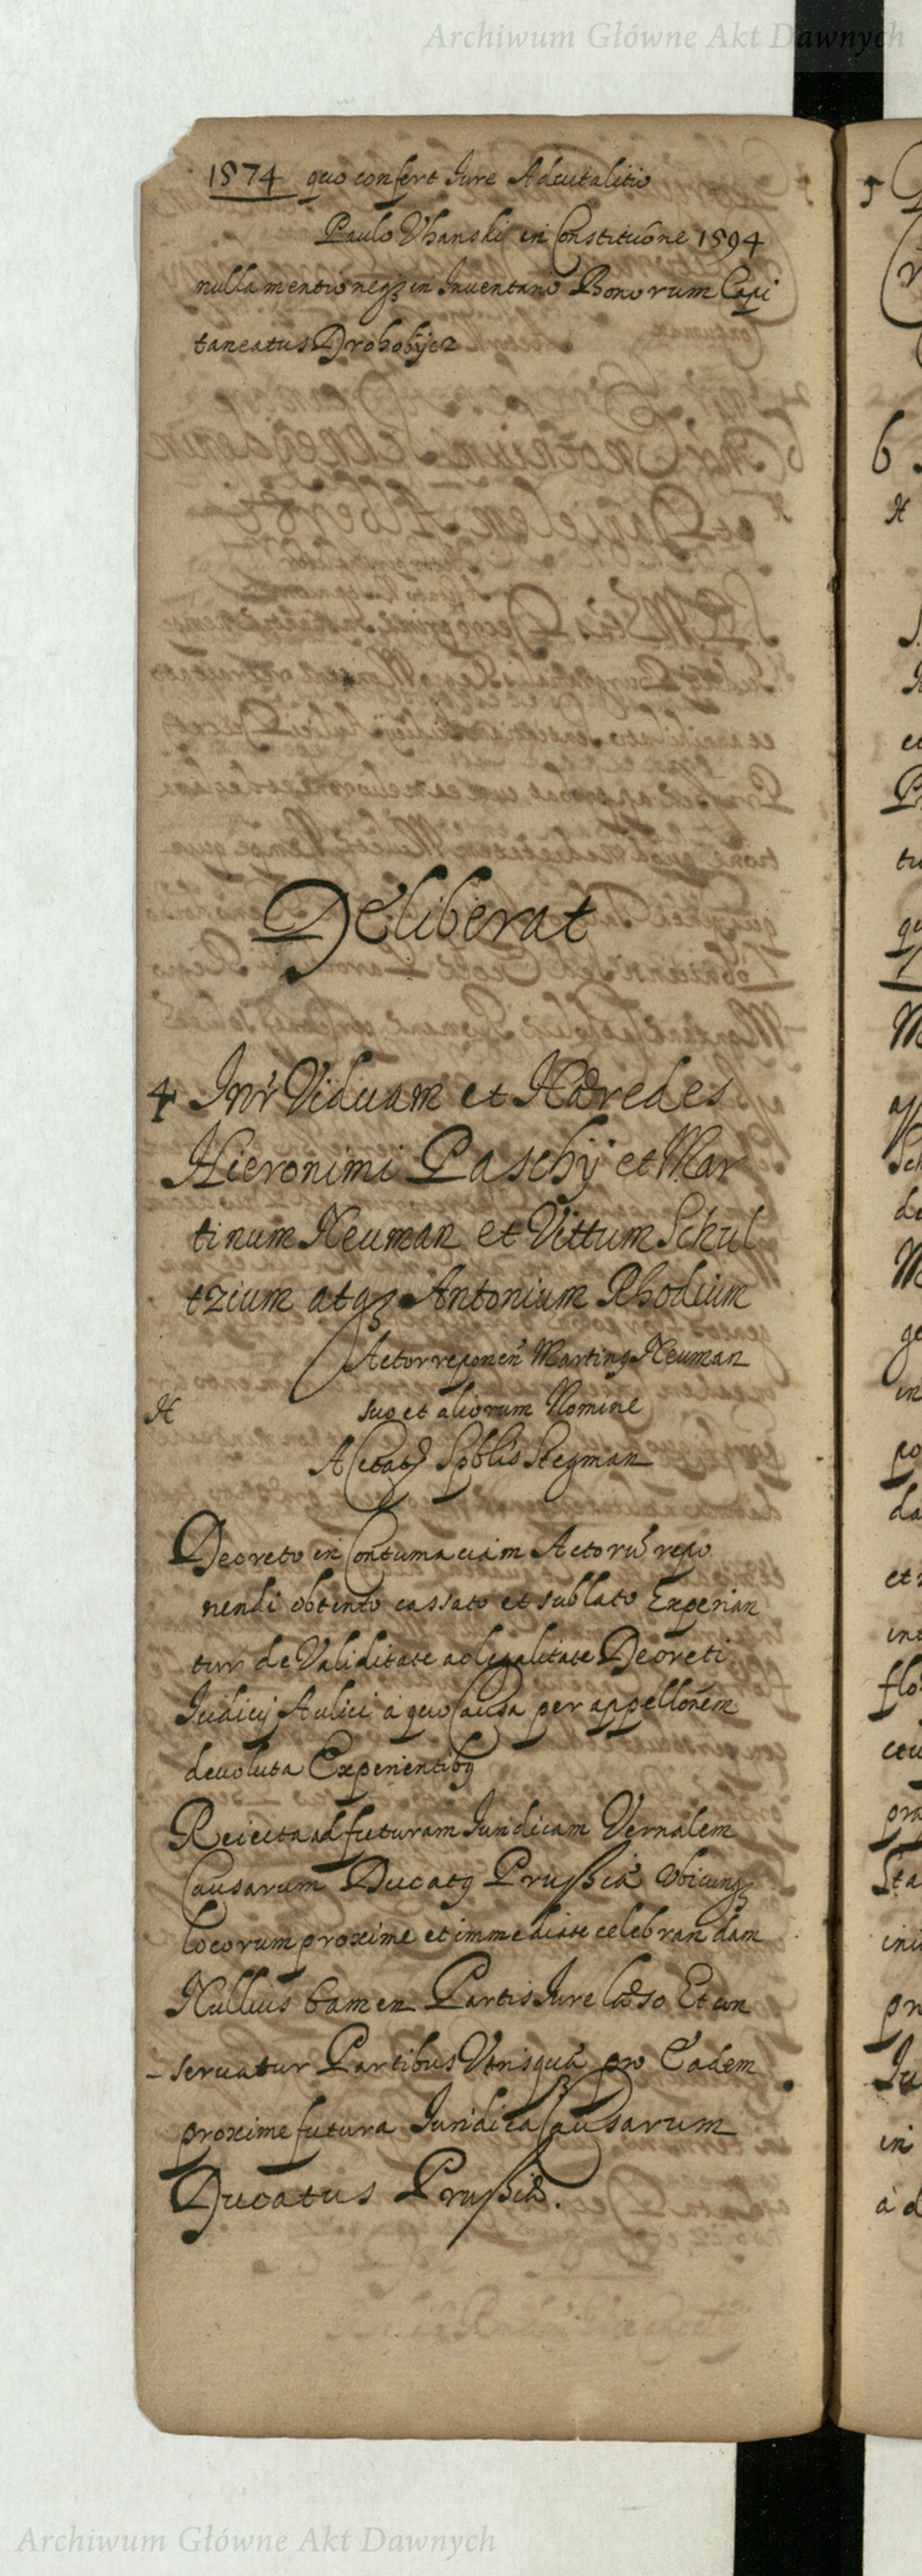 Archiwum Główne Akt Dawnych
1574 quo confert Iure Aduitalitio
Paulo Uhanski in Constitutione 1594
nulla mentio neqz in Inuentario Bonorum Capi
taneatus Drohobycz
Deliberat
4 Intr Viduam et Hæredes
Hieronimi Paschÿ et Mar
tinum Neuman et Vittum Schul
tzium atqz Antonium Rhodium
Actor reponen Martinq Neuman
H suo et aliorum Nomine
A Citatq Stegman
Decreto in Contumaciam Actorũ repo
nendi obtento cassato et sublato Experian
tur de Validitate ac legalitate Decreti
Iudicij Aulici à quo Causa per appellonem
deuoluta Experientibq
Reiecta ad futuram Iuridicam Vernalem
Causarum Ducatq Prussiæ Vbicunqz
locorum proxime et immediate celebrandam
Nullius tamen Partis Iure læso Et con
seruatur Partibus Vtrisque pro Eadem
proxime futura Iuridica Causarum
Ducatus Prussiæ.
Archiwum Główne Akt Dawnych